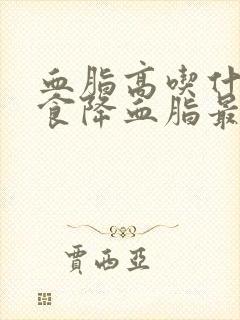 血脂高喫什
食降血脂最
賈西亞